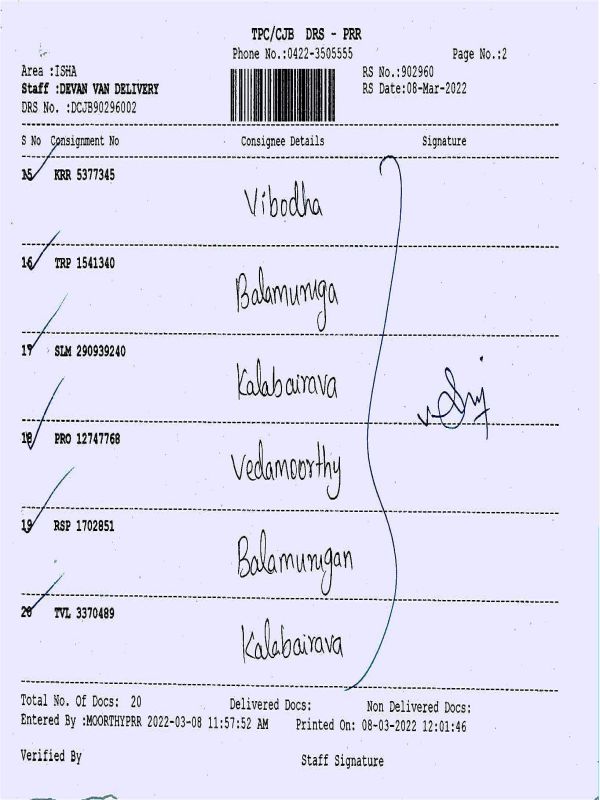 TPC/CJB DRS - PRR
Phone No.:0422-3505555 Page No.:2
Area :ISHA RS No.:902960
Staff :DEVAN VAN DELIVERY RS Date:08-Mar-2022
DRS No. :DCJB90296002
S No Consignment No Consignee Details Signature
15 KRR 5377345
Vibodha
16 TRP 1541340
Balamuruga
17 SLM 290939240
Kalabairava
18 PRO 12747768
Vedamoorthy
19 RSP 1702851
Balamurugan
20 TVL 3370489
Kalabairava
Total No. Of Docs: 20 Delivered Docs: Non Delivered Docs:
Entered By :MOORTHYPRR 2022-03-08 11:57:52 AM Printed On: 08-03-2022 12:01:46
Verified By Staff Signature